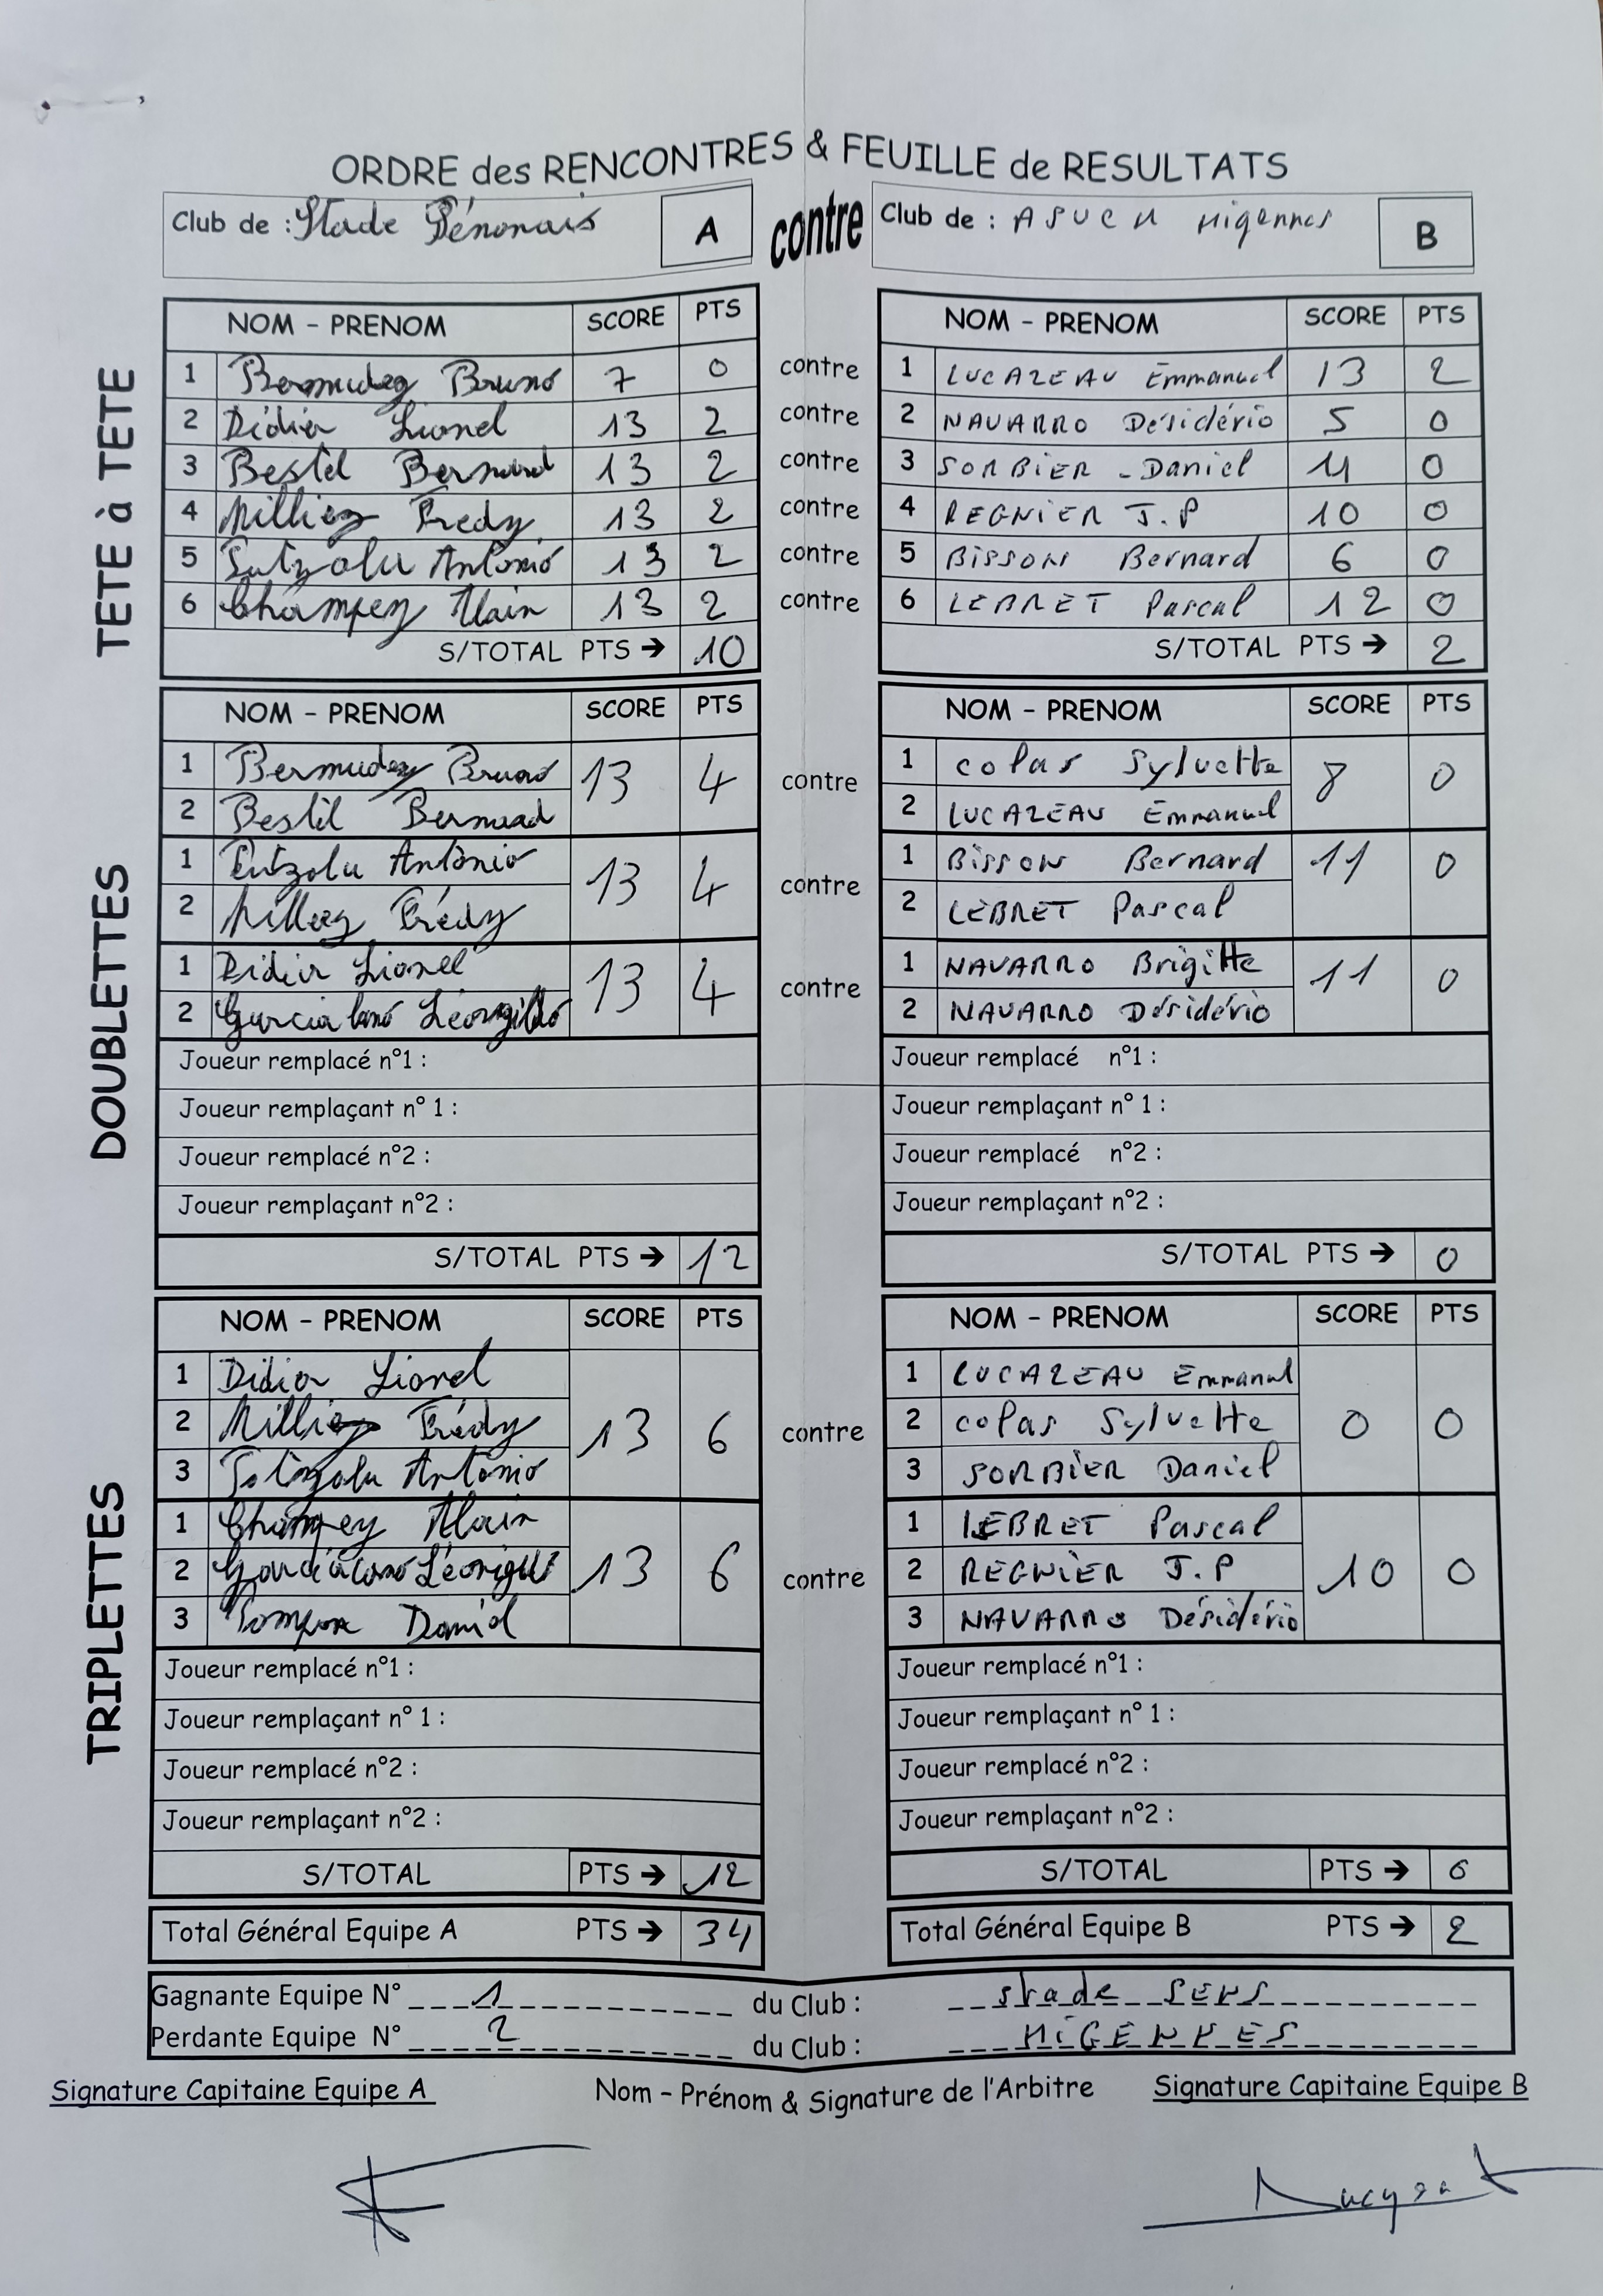 ORDRE des RENCONTRES & FEUILLE de RESULTATS
Club de : Stade Sénonais A contre Club de : ASUCM Migennes B
TETE à TETE
NOM - PRENOM SCORE PTS NOM - PRENOM SCORE PTS
1 Bermudez Bruno 7 0 contre 1 LUCAZEAU Emmanuel 13 2
2 Didier Lionel 13 2 contre 2 NAVARRO Désidério 5 0
3 Bestel Bernard 13 2 contre 3 SORBIER - Daniel 11 0
4 Milliez Frédy 13 2 contre 4 REGNIER J.P 10 0
5 Putzolu Antonio 13 2 contre 5 BISSON Bernard 6 0
6 Champey Alain 13 2 contre 6 LEBRET Pascal 12 0
S/TOTAL PTS → 10 S/TOTAL PTS → 2
DOUBLETTES
NOM - PRENOM SCORE PTS NOM - PRENOM SCORE PTS
1 Bermudez Bruno 13 4 contre 1 Colas Sylvette 8 0
2 Bestel Bernard 2 LUCAZEAU Emmanuel
1 Putzolu Antonio 13 4 contre 1 BISSON Bernard 11 0
2 Milliez Frédy 2 LEBRET Pascal
1 Didier Lionel 13 4 contre 1 NAVARRO Brigitte 11 0
2 Garcia 2 NAVARRO Désidério
Joueur remplacé n°1 : Joueur remplacé n°1 :
Joueur remplaçant n° 1 : Joueur remplaçant n° 1 :
Joueur remplacé n°2 : Joueur remplacé n°2 :
Joueur remplaçant n°2 : Joueur remplaçant n°2 :
S/TOTAL PTS → 12 S/TOTAL PTS → 0
TRIPLETTES
NOM - PRENOM SCORE PTS NOM - PRENOM SCORE PTS
1 Didier Lionel 1 LUCAZEAU Emmanuel
2 Milliez Frédy 13 6 contre 2 Colas Sylvette 0 0
3 Putzolu Antonio 3 SORBIER Daniel
1 Champey Alain 1 LEBRET Pascal
2 Garcia 13 6 contre 2 REGNIER J.P 10 0
3 Daniel 3 NAVARRO Désidério
Joueur remplacé n°1 : Joueur remplacé n°1 :
Joueur remplaçant n° 1 : Joueur remplaçant n° 1 :
Joueur remplacé n°2 : Joueur remplacé n°2 :
Joueur remplaçant n°2 : Joueur remplaçant n°2 :
S/TOTAL PTS → 12 S/TOTAL PTS → 0
Total Général Equipe A PTS → 34 Total Général Equipe B PTS → 2
Gagnante Equipe N° 1 du Club : stade SENS
Perdante Equipe N° 2 du Club : MIGENNES
Signature Capitaine Equipe A Nom - Prénom & Signature de l'Arbitre Signature Capitaine Equipe B